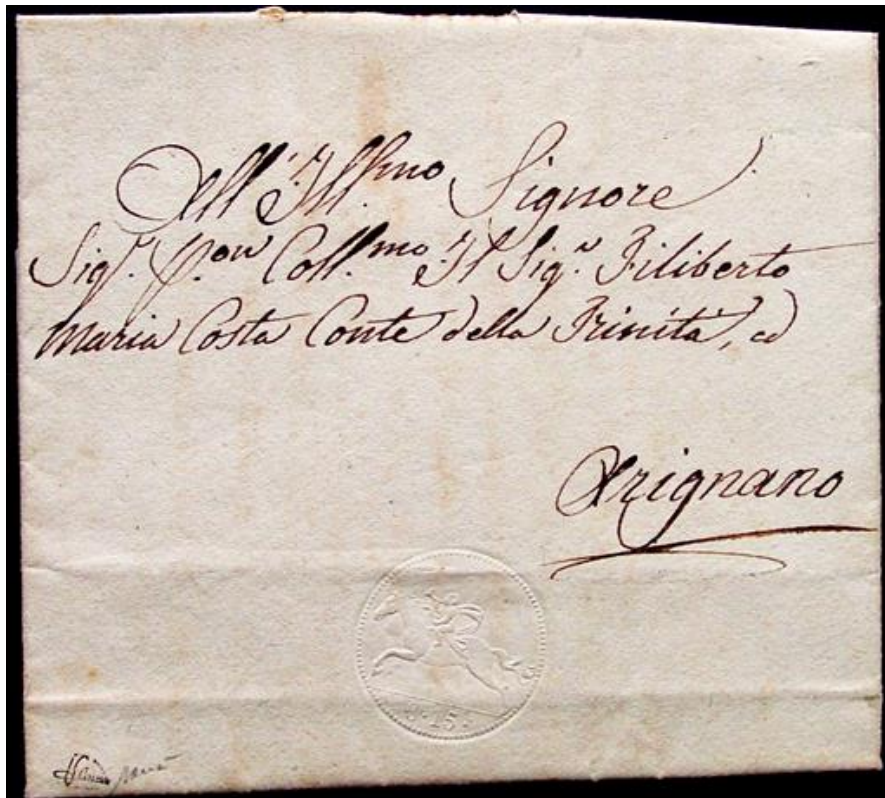 All' Ill.mo Signore
Sig.r P.on Coll.mo Il Sig.r Filiberto
Maria Costa Conte della Trinità, ad
Arignano
C. 15.